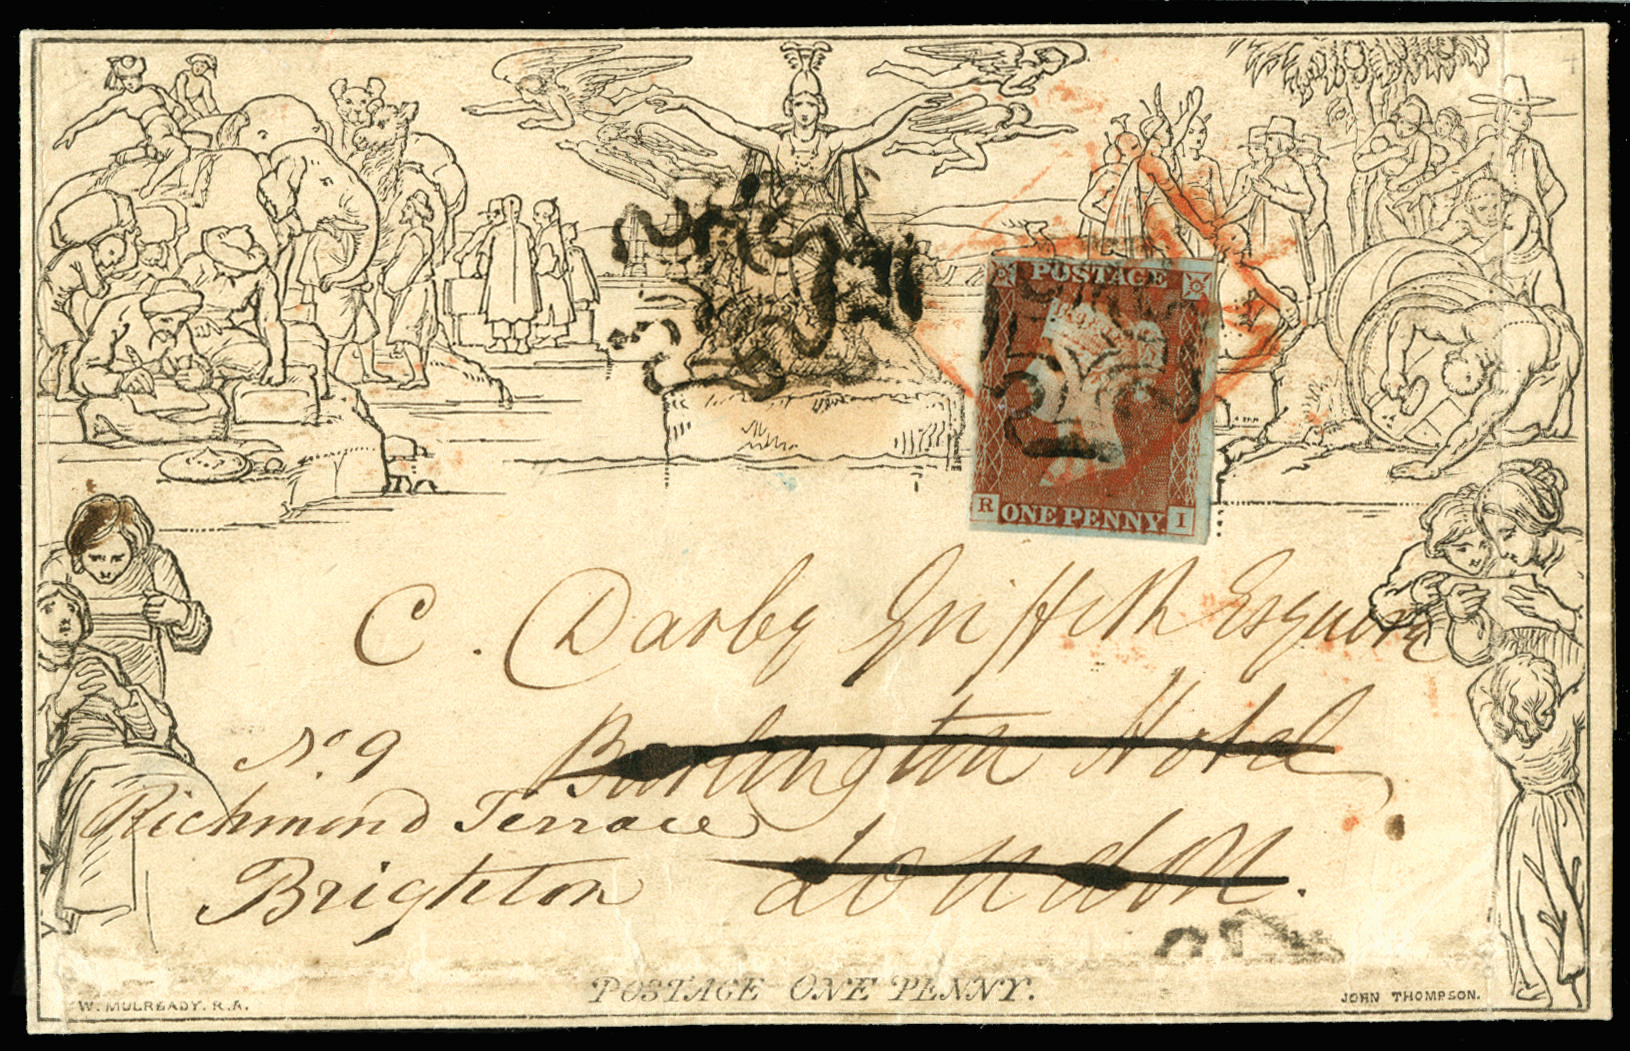 POSTAGE
R ONE PENNY I
C. Darby Griffith Esquire
No. 9 Burlington Hotel
Richmond Terrace
Brighton London.
POSTAGE ONE PENNY.
W. MULREADY. R.A.
JOHN THOMPSON.